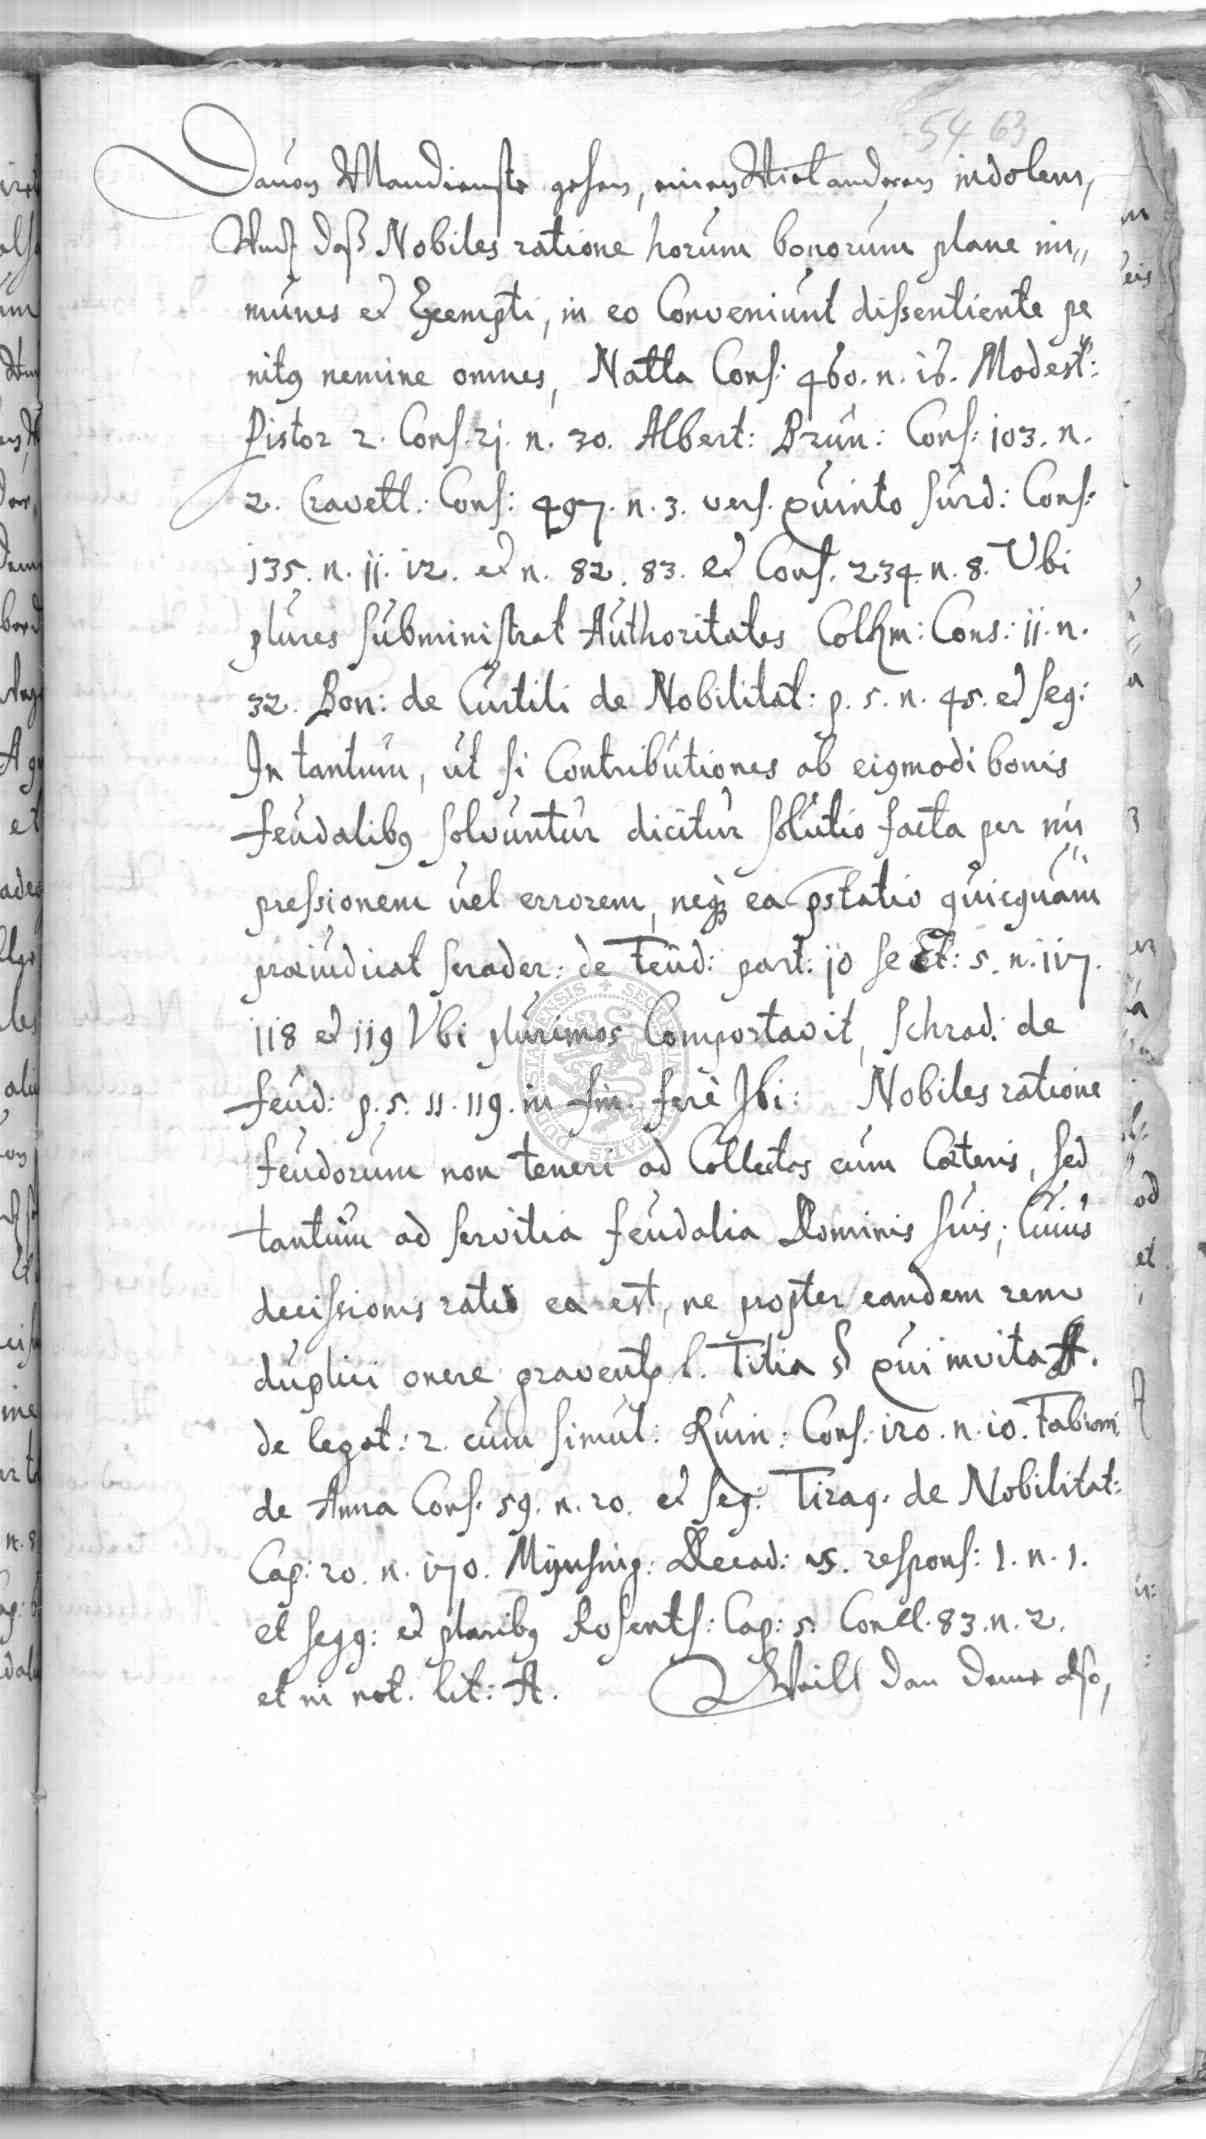 54 63
Davon Mandienste gehen, einen Viel anderen indolem,
Und daß Nobiles ratione horum bonorum plane im„
munes et Exempti, in eo Conveniunt dissentiente pe
nitg nemine omnes, Natta Cons: 460. n. 16. Modest:
Pistor 2. Cons. 21. n. 30. Albert: Brun: Cons: 103. n.
2. Cravett.: Cons: 497. n. 3. vers. quinto Surd: Cons:
135. n. 11. 12. et n. 82. 83. et Cons. 234. n. 8. Ubi
plures subministrat Authoritates Colhm: Cons: 11. n.
32. Bon: de Curtili de Nobilitat: p. 5. n. 45. et seq:
In tantum, ut si Contributiones ab eigmodi bonis
feudalibg solvuntur dicitur solutio facta per im
pressionem vel errorem, neq; ea pstatio quicquam
praeiudicat Scrader: de Feud: part: 10 sect: 5. n. 117.
118 et 119 Vbi plurimos Comportavit, Schrad: de
feud: p. 5. 11. 119. in fin. ferè Ibi: Nobiles ratione
feudorum non teneri ad Collectas cum Caeteris, sed
tantum ad servitia feudalia Dominis suis, Cuius
decissionis ratio ea est, ne propter eandem rem
duplici onere gravent l. Titia § qui invita ff.
de legat: 2. cum simul: Ruin: Cons: 120. n. 10. Fabium
de Anna Cons. 59. n. 20. et seq: Tiraq. de Nobilitat:
Cap: 20. n. 170. Mynsing: Decad: 15. respons: 1. n. 1.
et seqq: et pluribg Rosent: Cap: 5. Concl. 83. n. 2.
et in not. lit: A. Weill dan deme also,